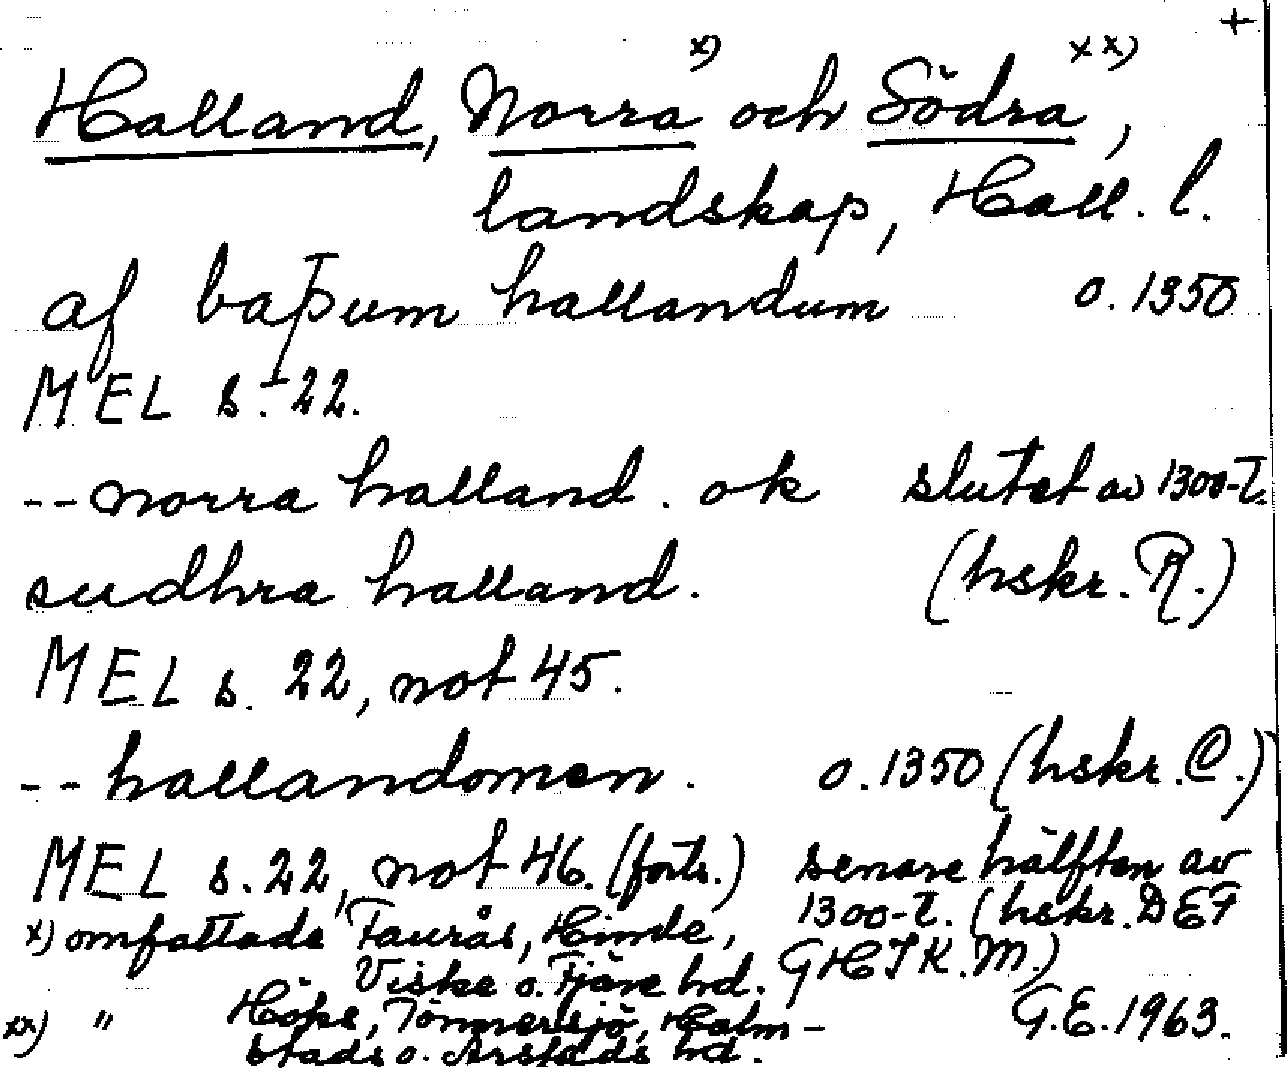 +
Halland, Norra x) och Södra xx),
landskap, Hall. l.
af baþum hallandum o. 1350
MEL s. 22.
-- norra halland. ok slutet av 1300-t.
sudhra halland. (hskr. R.)
MEL s. 22, not 45.
-- hallandomen. o. 1350 (hskr. C.)
MEL s. 22, not 46. (forts.) senare hälften av
1300-t. (hskr. DEF
x) omfattade Faurås, Himle,
GHIK.M.)
Viske o. Fjäre hd.
xx) " Höks, Tönnersjö, Halm-
stads o. Årstads hd.
G.E. 1963.